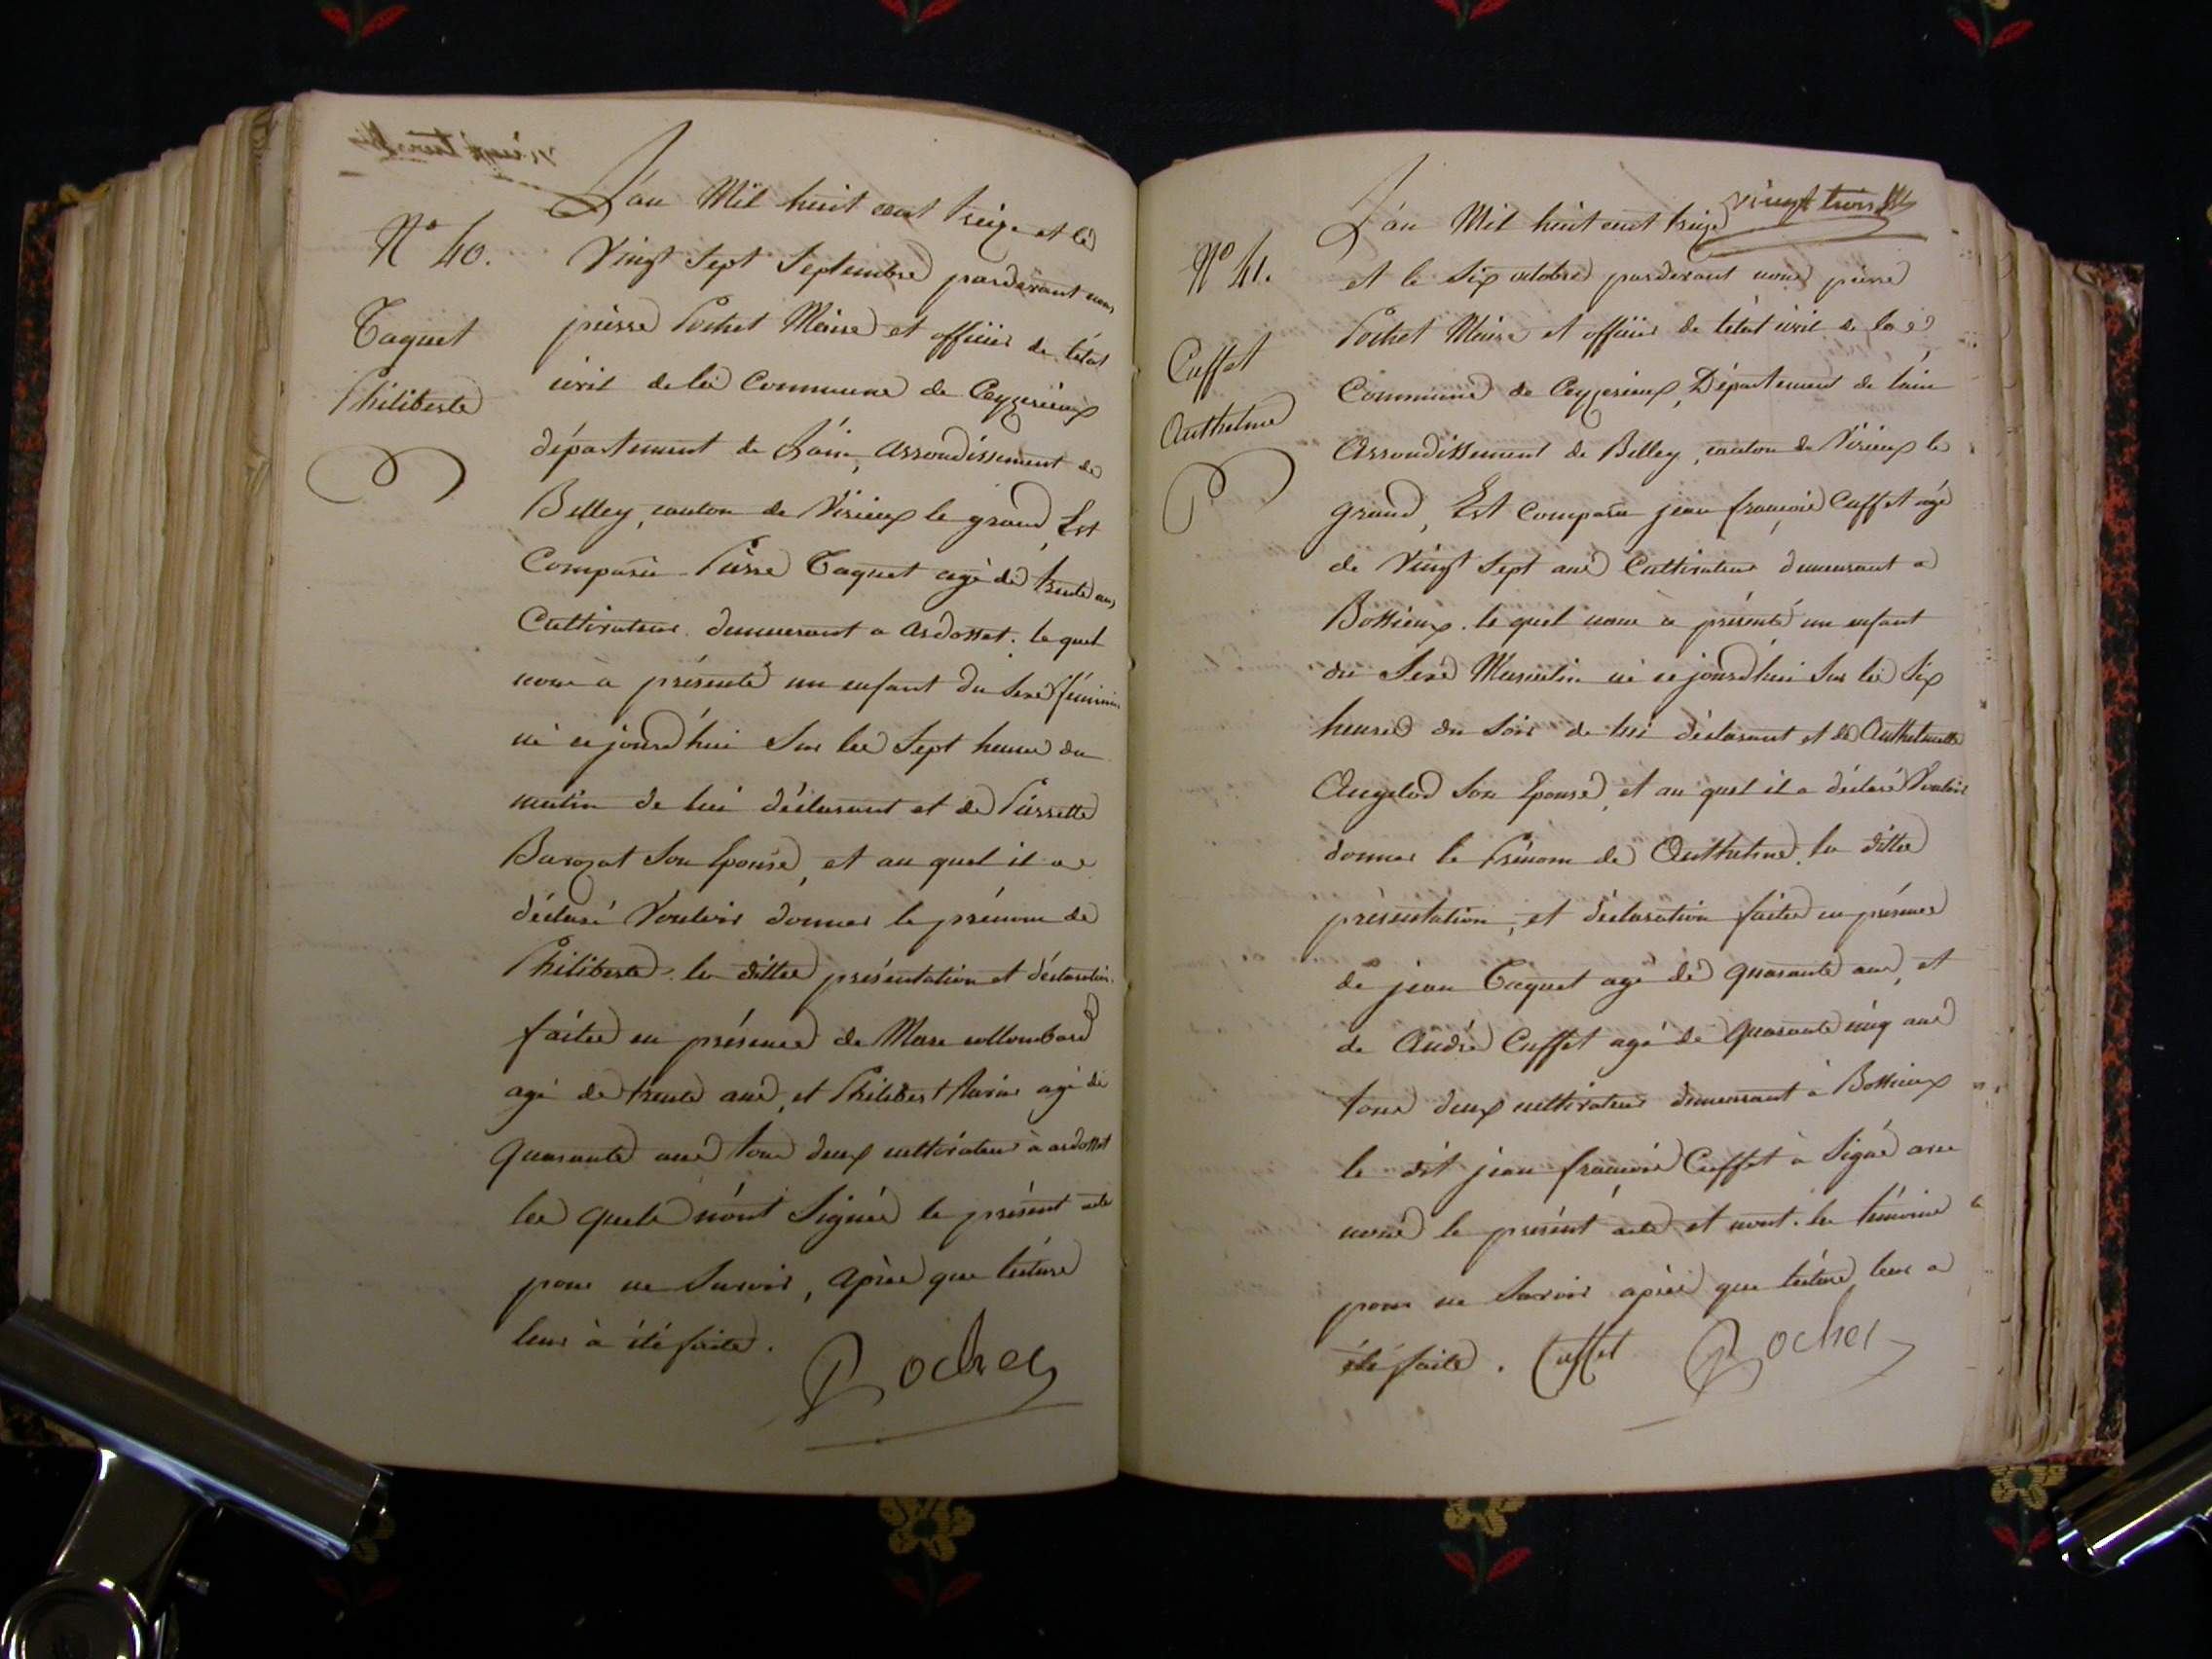 N° 40.
Taquet
Philiberte
L'an Mil huit cent treize et le
Vingt Sept Septembre pardevant nous
pierre Pochet Maire et officier de l'état
civil de la Commune de Ceyzerieux
département de L'ain, arrondissement de
Belley, canton de Virieux le grand, Est
Comparu Pierre Taquet agé de trente ans
Cultivateur demeurant a ardosset. le quel
nous à présenté un enfant du Sexe féminin
né cejourd'hui Sur les Sept heures du
matin de lui déclarant et de Pierrette
Barozat Son Epouse, et au quel il a
déclaré Vouloir donner le prénom de
Philiberte. la ditte présentation et déclaration
faites en présence de Marc collombard
agé de trente ans, et Philibert agé de
quarante ans tous deux cultivateur à ardosset
les quels n'ont Signés le présent acte
pour ne Savoir, après que lécture
leur à été faite.
Pochet
vingt trois
N° 41.
Cuffet
Anthelme
L'an Mil huit cent treize
et le Six octobre pardevant nous pierre
Pochet Maire et officier de l'état civil de la
Commune de Ceyzerieux, Département de l'ain
Arrondissement de Belley, canton de Virieux le
grand, Est Comparu jean françois Cuffet agé
de Vingt Sept ans Cultivateur demeurant a
Bossieux. le quel nous a présenté un enfant
du Sexe Masculin né cejourd'hui Sur les Six
heures du Soir de lui déclarant et de Anthelmette
Angelod Son Epouse, et au quel il a déclaré Vouloir
donner le Prénom de Anthelme. la ditte
présentation, et déclaration faites en présence
de jean Taquet agé de quarante ans, et
de André Cuffet agé de quarante cinq ans
tous deux cultivateurs demeurant à Bossieux
le dit jean françois Cuffet à Signé avec
nous le présent acte et nont. les témoins
pour ne Savoir après que lécture leur a
été faite. Cuffet Pochet